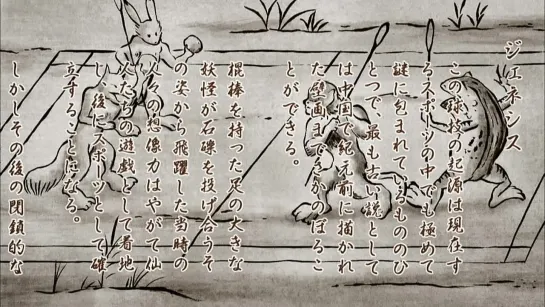 ジェネシス
この球技の起源は現在す
るスポーツの中でも極めて
謎に包まれているもののひ
とつで、最も古い説として
は中国で紀元前に描かれ
た壁画までさかのぼるこ
とができる。
棍棒を持った足の大きな
妖怪が石礫を投げ合うそ
の姿から飛躍した当時の
人々の想像力はやがて仙
人たちの遊戯として着地
し、後にスポーツとして確
立することになる。
しかしその後の閉鎖的な